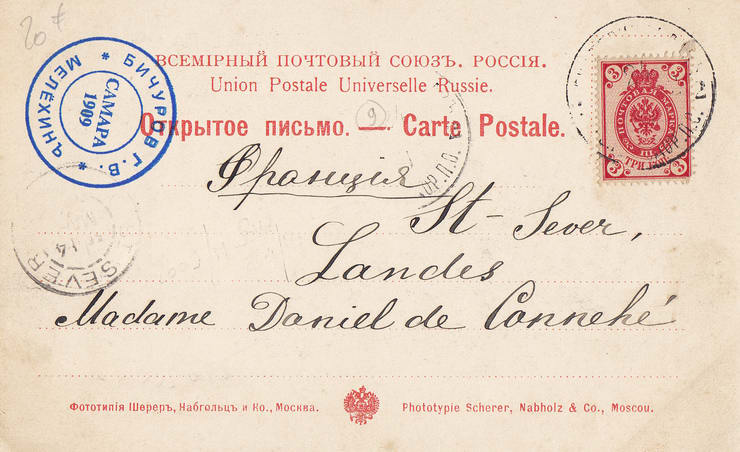 20 €
БИЧУРОВ Г.В.
* МЕЛЕХИНА *
САМАРА
1909
ВСЕМІРНЫЙ ПОЧТОВЫЙ СОЮЗЪ. РОССІЯ.
Union Postale Universelle Russie.
9
Открытое письмо. — Carte Postale.
3 3
ПОЧТОВАЯ МАРКА
3 3
Франція
St-Sever,
Landes
SEVER
14
Madame Daniel de Connehé
Фототипія Шереръ, Набгольцъ и Ко., Москва.
Phototypie Scherer, Nabholz & Co., Moscou.